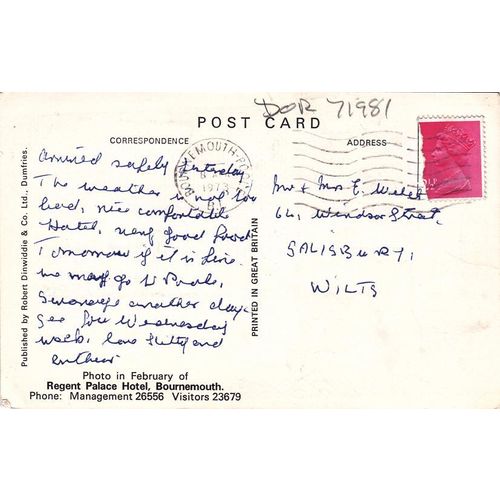 DOR 71981
POST CARD
CORRESPONDENCE
ADDRESS
BOURNEMOUTH POOLE
1973
Arrived safely yesterday.
The weather is not too
bad, nice comfortable
Hotel, very good food
Tomorrow if it is fine
we may go to Poole,
Swanage another day.
See you Wednesday
week, love
and
Mr & Mrs E.
64, Windsor Street,
SALISBURY,
WILTS
Photo in February of
Regent Palace Hotel, Bournemouth.
Phone: Management 26556 Visitors 23679
Published by Robert Dinwiddie & Co. Ltd., Dumfries.
PRINTED IN GREAT BRITAIN